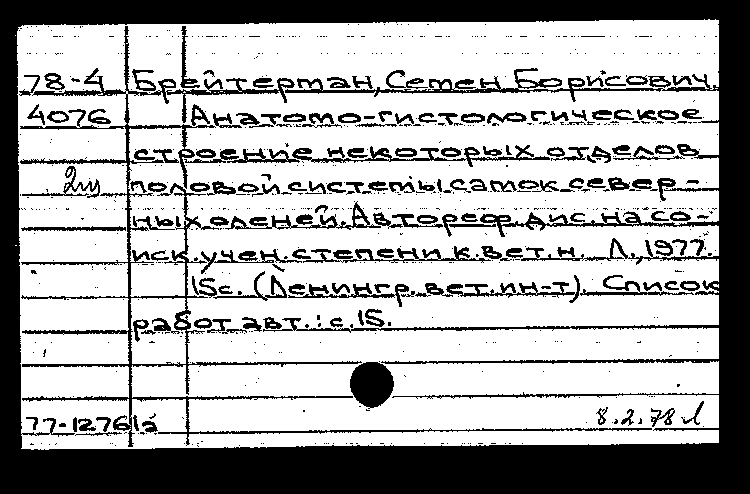 78-4 Брейтерман, Семен Борисович.
4076 Анатомо-гистологическое
строение некоторых отделов
2щ половой системы самок север-
ных оленей. Автореф. дис. на со-
иск. учен. степени к. вет. н. Л., 1977.
15с. (Ленингр. вет. ин-т). Список
работ авт.: с. 15.
77-12761а 8.2.78 л